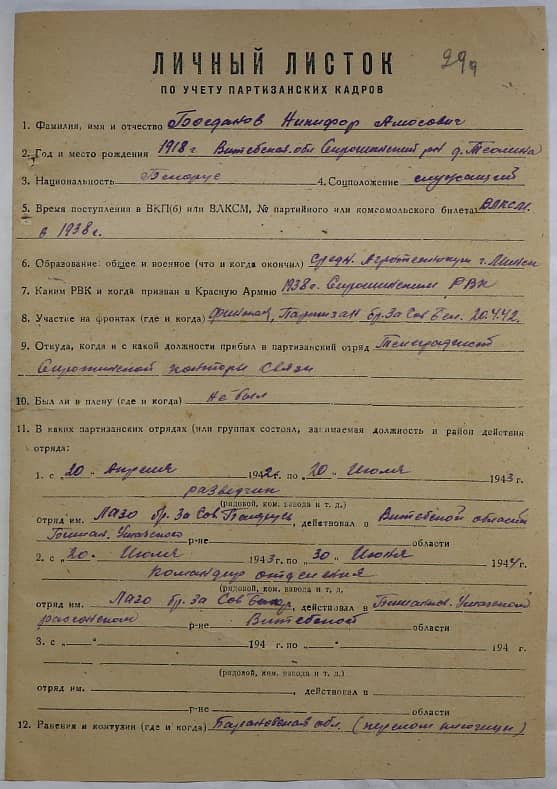 299
ЛИЧНЫЙ ЛИСТОК
ПО УЧЕТУ ПАРТИЗАНСКИХ КАДРОВ
1. Фамилия, имя и отчество Богданов Никифор Амосович
2. Год и место рождения 1918 г Витебская обл Сиротинский рн д.
3. Национальность Белорус 4. Соцположение служащий
5. Время поступления в ВКП(б) или ВЛКСМ, № партийного или комсомольского билета ВЛКСМ.
в 1938 г.
6. Образование: общее и военное (что и когда окончил) Средн. Агротехникум г.
7. Каким РВК и когда призван в Красную Армию 1938 г. Сиротинским РВК
8. Участие на фронтах (где и когда) Партизан бр. За Сов Бел. 20.4.42.
9. Откуда, когда и с какой должности прибыл в партизанский отряд Телеграфист
Сиротинской конторы связи
10. Был ли в плену (где и когда) не был
11. В каких партизанских отрядах (или группах состоял, занимаемая должность и район действия
отряда:
1. с „20„ Апреля 1942 г. по „20„ Июля 1943 г.
разведчик
(рядовой, ком. взвода и т. д.)
отряд им. Лазо бр. За Сов Беларусь, действовал в Витебской области
р-не области
2. с „20.„ Июля 1943 г. по „30„ Июня 1944 г.
командир отделения
(рядовой, ком. взвода и т. д.)
отряд им. Лазо бр. За Сов, действовал в
р-не Витебской области
3. с „ „ 194 г. по „ „ 194 г.
(рядовой, ком. взвода и т. д.)
отряд им. , действовал в
р-не области
12. Ранения и контузии (где и когда) Барановская обл. (перелом ключицы)